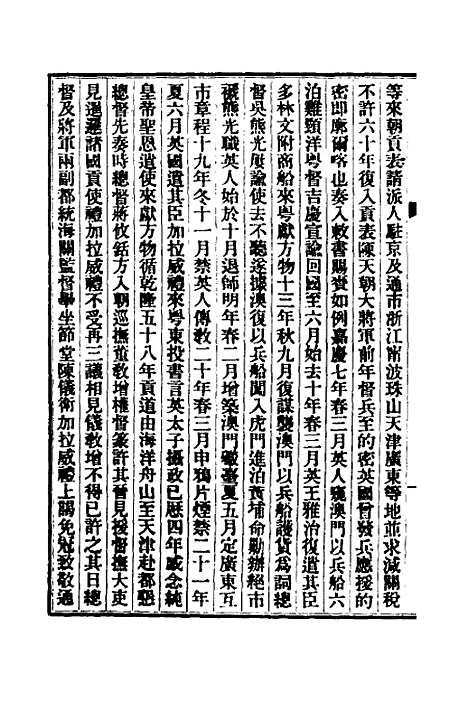 等來朝貢表請派人駐京及通市浙江甯波珠山天津廣東等地並求減關稅
不許六十年復入貢表陳天朝大將軍前年督兵至的密英國曾發兵應援的
密即廓爾喀也奏入敕書賜賚如例嘉慶七年春三月英人窺澳門以兵船六
泊雞頸洋粵督吉慶宣諭回國至六月始去十年春三月英王雅治復遣其臣
多林文附商船來粵獻方物十三年秋九月復謀襲澳門以兵船護貨為詞總
督吳熊光屢諭使去不聽遂據澳復以兵船闖入虎門進泊黃埔命勦辦絕市
褫熊光職英人始於十月退師明年春二月增築澳門礮臺夏五月定廣東互
市章程十九年冬十一月禁英人傳教二十年春三月申鴉片煙禁二十一年
夏六月英國遣其臣加拉威禮來粵東投書言英太子攝政已歷四年感念純
皇帝聖恩遣使來獻方物循乾隆五十八年貢道由海洋舟山至天津赴都懇
總督先奏時總督蔣攸銛方入朝巡撫董教增權督篆許其晉見援督撫大吏
見暹邏諸國貢使禮加拉威禮不受再三議相見儀教增不得已許之其日總
督及將軍兩副都統海關監督畢坐節堂陳儀衛加拉威禮上謁免冠致敬通